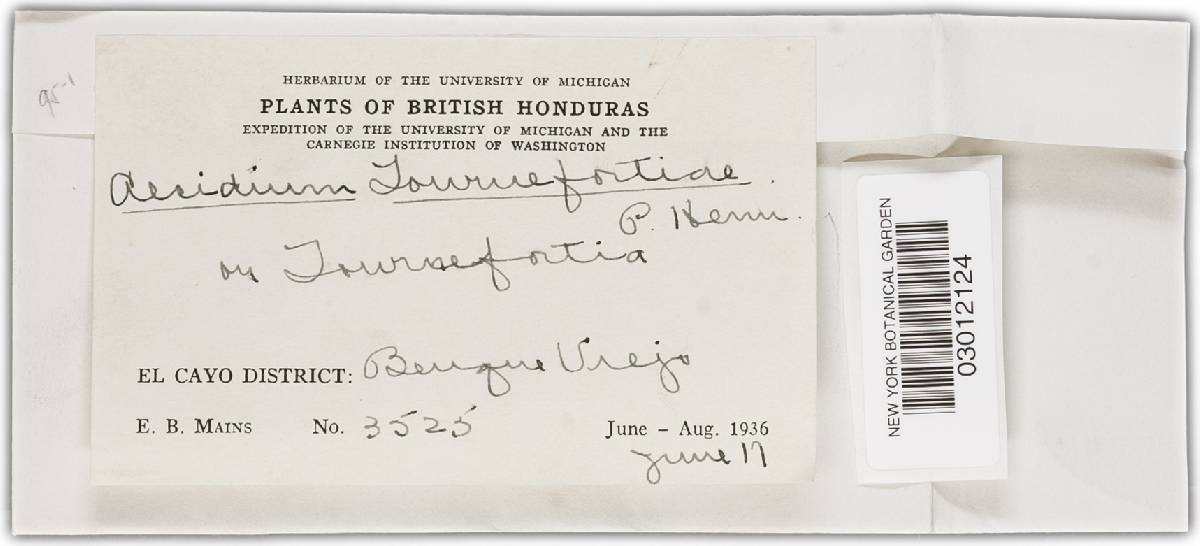 95-1
HERBARIUM OF THE UNIVERSITY OF MICHIGAN
PLANTS OF BRITISH HONDURAS
EXPEDITION OF THE UNIVERSITY OF MICHIGAN AND THE
CARNEGIE INSTITUTION OF WASHINGTON
Aecidium Tournefortiae.
P. Henn.
on Tournefortia
EL CAYO DISTRICT: Benque Viejo
E. B. MAINS No. 3525 June - Aug. 1936
June 17
NEW YORK BOTANICAL GARDEN
03012124